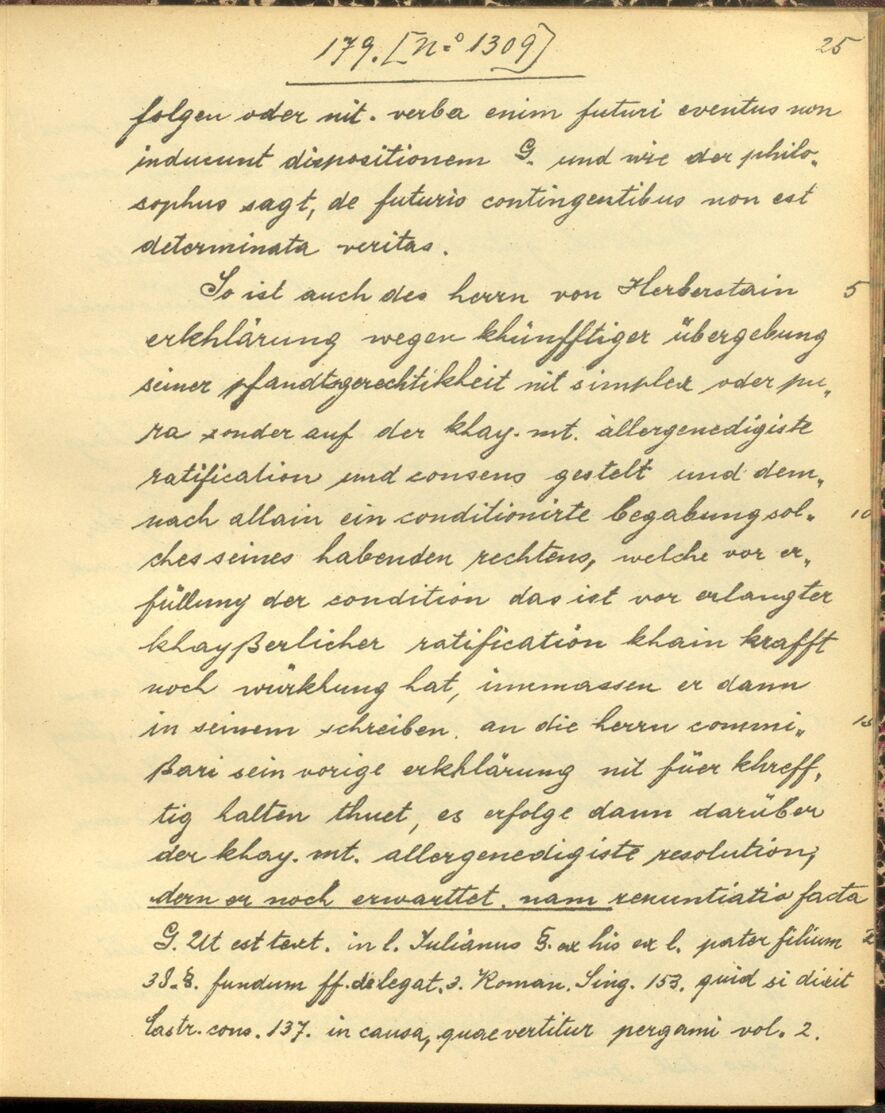 179. [No 1309]
25
folgen oder nit. verba enim futuri eventus non
inducunt dispositionem G. und wie der philo„
sophus sagt, de futuris contingentibus non est
determinata veritas.
So ist auch des herrn von Herberstain 5
erkhlärung wegen khünfftiger übergebung
seiner pfandtsgerechtikheit nit simplex oder pu„
ra sonder auf der khay. mt. allergenedigiste
ratification und consens gestelt und dem„
nach allain ein conditionirte begabung sol„ 10
ches seines habenden rechtens, welche vor er„
füllung der condition das ist vor erlangter
khayßerlicher ratification khain krafft
noch würkhung hat, inmassen er dann
in seinem schreiben an die herrn commi„ 15
ßari sein vorige erkhlärung nit füer khreff„
tig halten thuet, es erfolge dann darüber
der khay. mt. allergenedigiste resolution,
dern er noch erwarttet. nam renuntiatio facta
G. Ut est text. in l. Julianus §. ex his ex l. pater filium
38. §. fundum ff. de legat. 3. Roman. Sing. 153. quid si dixit
Castr. cons. 137. in causa, quae vertitur pergami vol. 2.